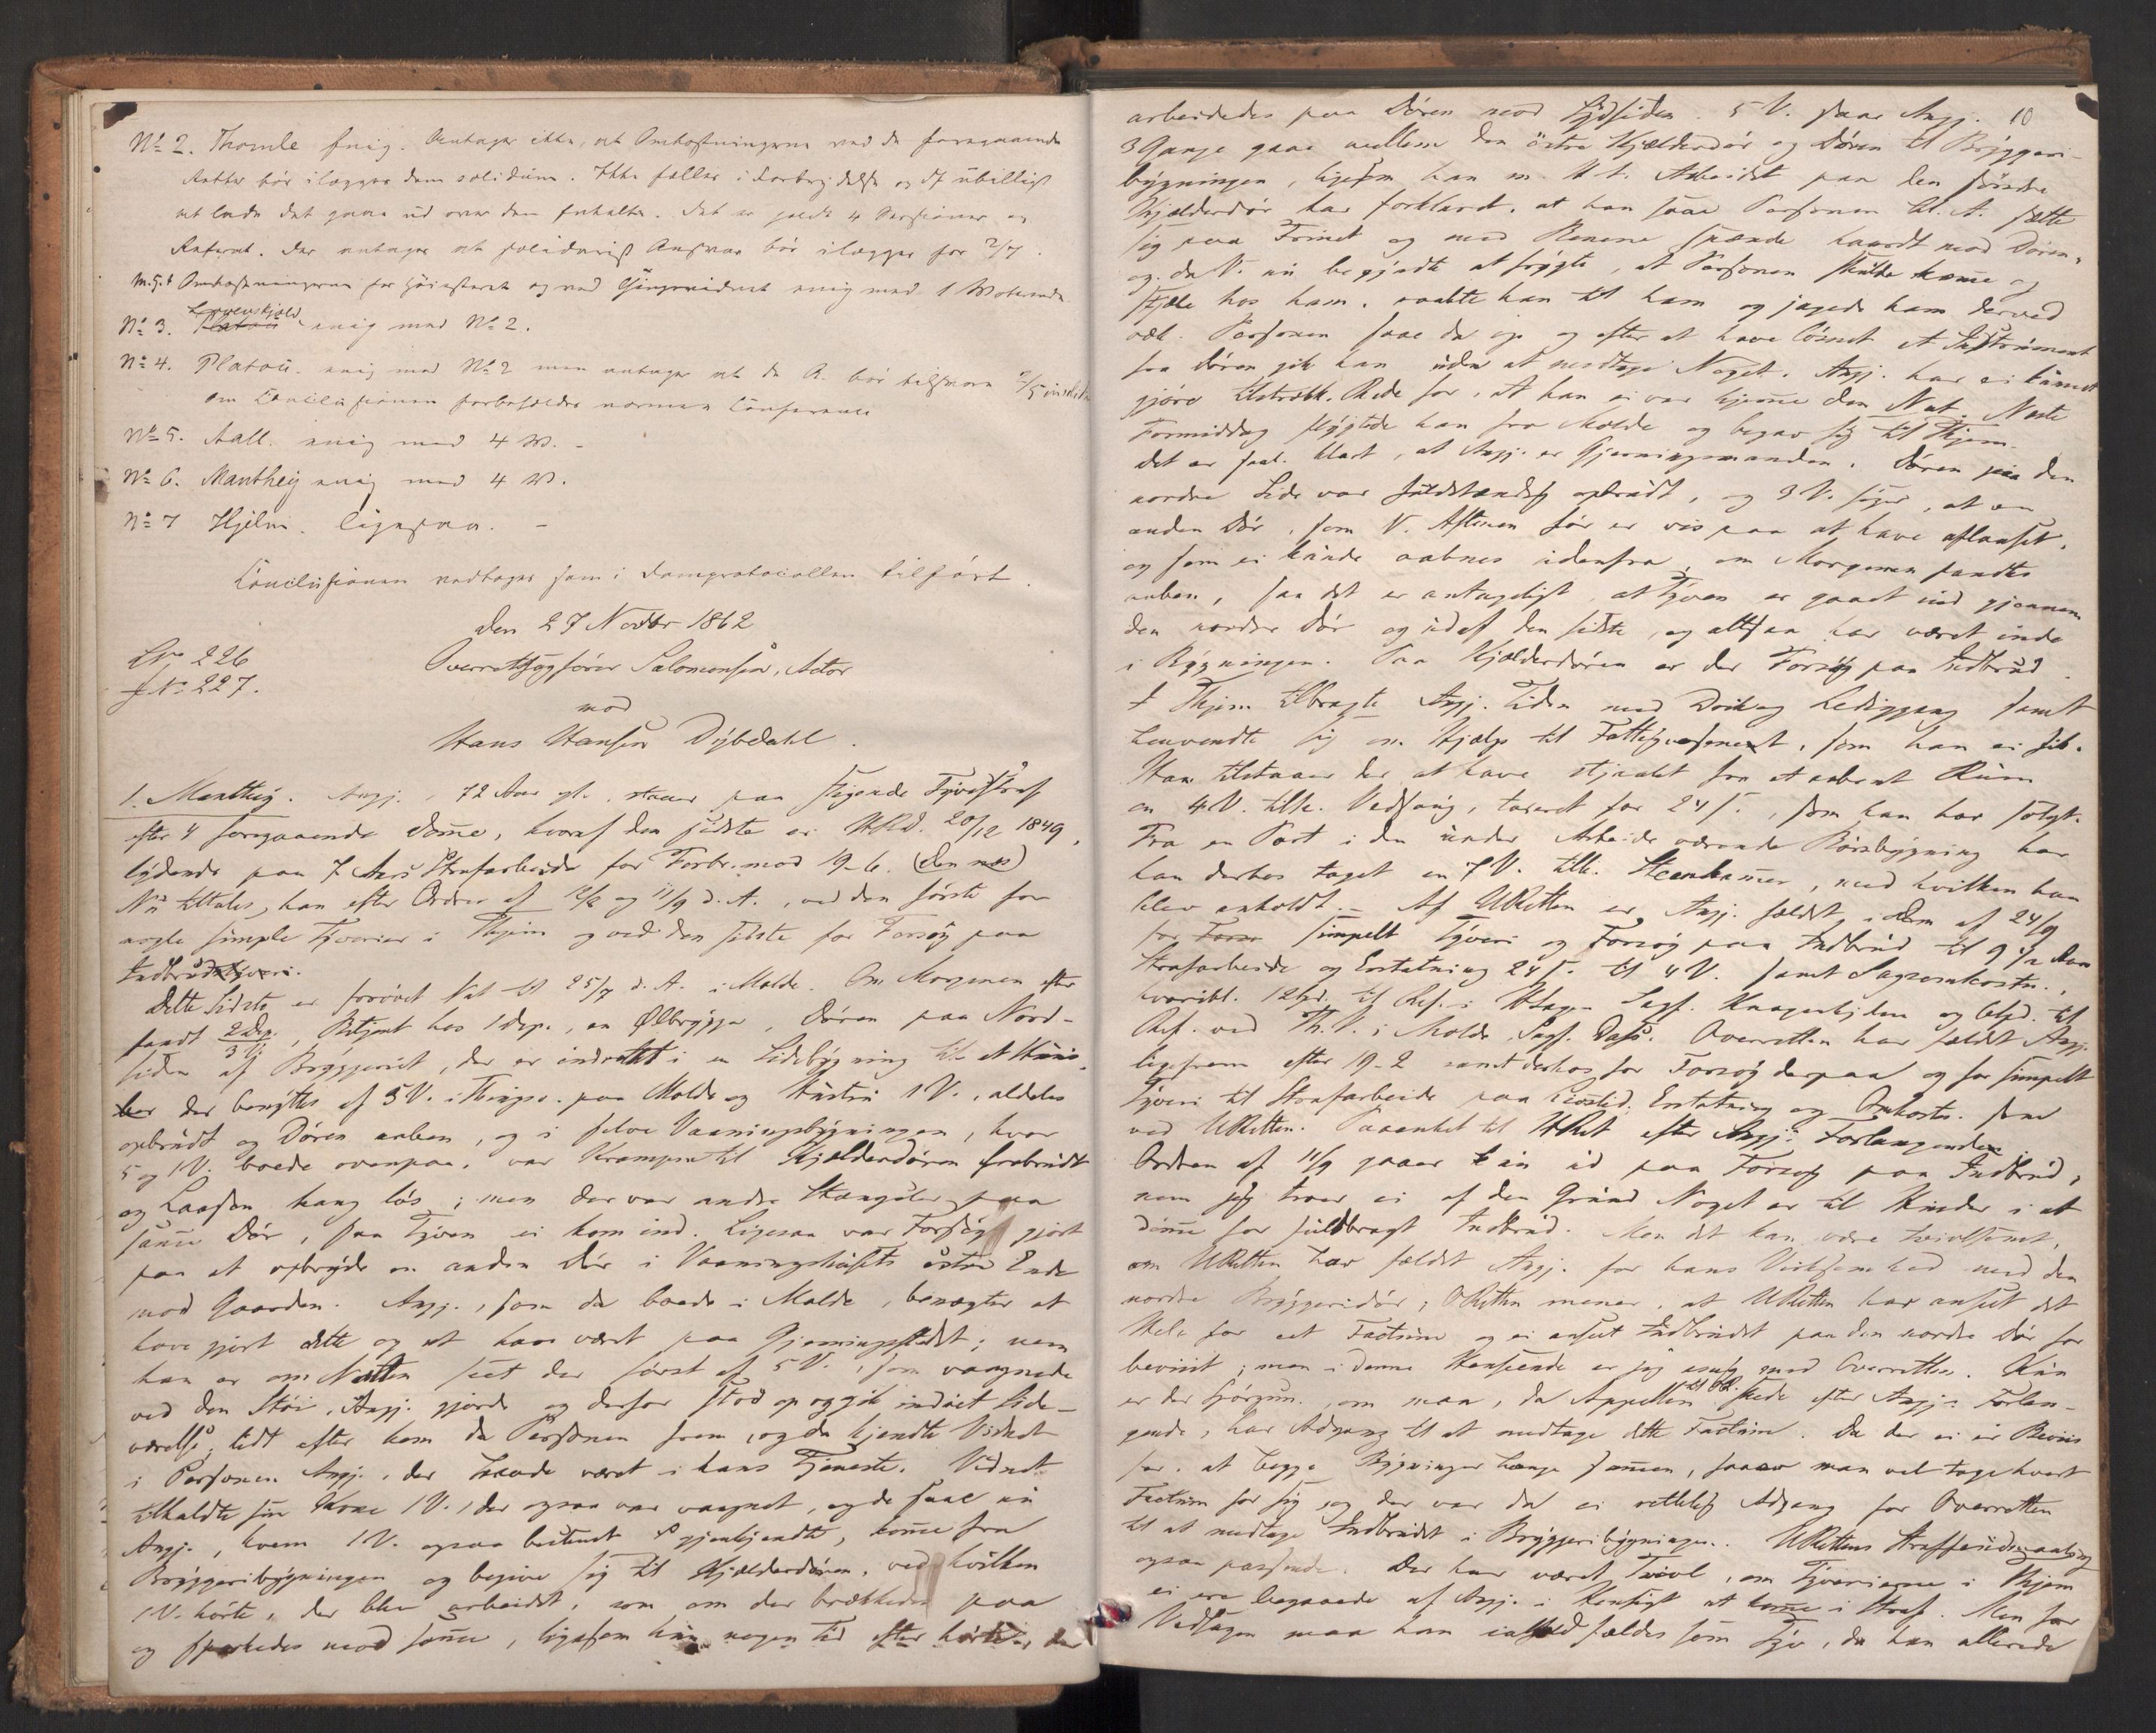 No 2. Thomle enig. Antager ikke, at Omkostningerne ved de foregaaende
Retter bør ilægges dem solidum. Ikke fælles i Forbrydelse og det ubilligt
at lade det gaae ud over den Enkelte. Det er 4 Personer og
Referent. Der antager at solidarisk Ansvar bør ilægges for 2/7.
M. H. t. Omkostningerne for Høiesteret og ved enig med 1 Voterende
No 3. Løvenskjold enig med No 2.
No 4. Platou. enig med No 2 men antager at de R. bør tilsvare 2/5
om Conclusionen forbeholdes nærmere Conference
No 5. Aall. enig med 4 V. -
No 6. Manthey enig med 4 V.
No 7 Hjelm. ligesaa. -
Conclusionen vedtages som i Domsprotocollen tilført.
Den 27 Novbr 1862
No 226
No 227.
Overretssagfører Salomonsen, Actor
mod
Hans Hansen Dybdahl.
1. Manthey. Angj., 72 Aar gl., staaer paa stigende Tyvsstraf
efter 4 foregaaende Domme, hvoraf den sidste er HRD. 20/12 1849,
lydende paa 7 Aars Strafarbeide for Forbr. mod 19-6.
Nu tiltales han efter Ordre af og 11/9 d. A., ved den første for
nogle simple Tyverier i Thjem og ved den sidste for Forsøg paa
Indbrudstyveri.
Dette Sidste er forøvet Nat til 25/7 d. A. i Molde. Om Morgenen efter
fandt 2 Dep. 3 V., Betjent hos 1 Dep., en Ølbrygger, Døren paa Nord-
siden af Bryggeriet, der er indrettet i en Sidebygning til et Huus,
der benyttes af 5 V. paa Molde og Hustru 1 V., aldeles
opbrudt og Døren aaben, og i selve Vaaningsbygningen, hvor
5 og 1 V. boede ovenpaa, var Krampen til Kjælderdøren frabrudt
og Laasen hang løs; men der var andre Stængsler paa
samme Dør, saa Tyven ei kom ind. Ligesaa var Forsøg gjort
paa at opbryde en anden Dør i Vaaningshusets østre Ende
mod Gaarden. Angj., som da boede i Molde, benægter at
have gjort dette og at have været paa Gjerningsstedet; men
han er om Natten seet der først af 5 V., som vaagnede
ved den Støi, Angj. gjorde og derfor stod op og gik ind i et Side-
værelse; lidt efter kom da Personen frem, og da kjendte Vidnet
i Personen Angj., der havde været i hans Tjeneste. Vidnet
tilkaldte sin Kone 1 V., der ogsaa var vaagnet, og de saae nu
Angj., hvem 1 V. ogsaa bestemt gjenkjendte, komme fra
Bryggeribygningen og begive sig til Kjælderdøren, ved hvilken
1 V. hørte, der blev arbeidet, som om der brækkedes paa
og sparkedes mod samme, ligesom hun nogen Tid efter hørte, der
10
arbeidedes paa Døren mod Sydsiden. 5 V. saae Angj.
3 Gange gaae mellem den østre Kjælderdør og Døren til Bryggeri-
bygningen, ligesom han m. H. t. Arbeidet paa den søndre
Kjælderdør har forklaret, at han saae Personen bl. A. sætte
sig paa Trinet og med Benene spænde haardt mod Døren,
og da V. nu begyndte at frygte, at Personen skulde komme og
stjæle hos ham, raabte han til ham og jagede ham derved
væk. Personen saae da op og efter at have løsnet et Instrument
fra Døren gik han uden at medtage Noget. Angj. har ei kunnet
gjøre tilstrækk. Rede for, at han ei var hjemme den Nat. Næste
Formiddag flygtede han fra Molde og begav sig til Thjem.
Det er saal. klart, at Angj. er Gjerningsmanden. Døren paa den
nordre Side var fuldstændig opbrudt, og 3 V. siger, at en
anden Dør, som V. Aftenen før er vis paa at have aflaaset,
og som ei kunde aabnes udenfra, om Morgenen fandtes
aaben, saa det er antageligt, at Tyven er gaaet ind gjennem
den nordre Dør og ud af den sidste, og altsaa har været inde
i Bygningen. Paa Kjælderdøren er der Forsøg paa Indbrud.
I Thjem tilbragte Angj. Tiden med Drik og Lediggang samt
henvendte sig om Hjælp til Fattigvæsenet, som han ei fik.
Han tilstaaer der at have stjaalet fra et aabent Rum
en 4 V. tilh. Vedsaug, taxeret for 24 s., som han har solgt.
Fra en Port i den under Arbeide værende Børsbygning har
han derhos taget en 7 V. tilh. Steenhammer, med hvilken han
blev anholdt. - Af URetten er Angj. fældet i Dom af 24/9
for simpelt Tyveri og Forsøg paa Indbrud til 9 1/2 Aars
Strafarbeide og Erstatning 24 s. til 4 V. samt Sagsomkostn.,
hvoribl. 12 Spd. til Def. i Sagf. og 6 Spd. til
Def. ved Th. V. i Molde, Sagf. Dass. Overretten har fældet Angj.
ligefrem efter 19-2 samt derhos for Forsøg derpaa og for simpelt
Tyveri til Strafarbeide paa Livstid. Erstatning og Omkostn. som
ved URetten. Paaanket til HRet efter Angj.s Forlangende.
Ordren af 11/9 gaaer kun ud paa Forsøg paa Indbrud,
men jeg troer ei af den Grund Noget er til Hinder i at
dømme for fuldbragt Indbrud. Men det kan være tvivlsomt,
om URetten har fældet Angj. for hans Virksomhed ved den
nordre Bryggeridør; ORetten mener, at URetten har anseet det
Hele for eet Factum og ei anseet Indbrudet paa den nordre Dør for
beviist; men i denne Henseende er jeg enig med Overretten. Kun
er der Spørgsm., om man, da Appellen til OR. skede efter Angj.s Forlan-
gende, har Adgang til at medtage dette Factum. Da der ei er Beviis
for, at begge Bygninger hænge sammen, saa man vel tage hvert
Factum for sig, og der var da ei retlig Adgang for Overretten
til at medtage Indbrudet i Bryggeribygningen. URettens Straffeudmaaling
ogsaa passende. Der har været Tvivl, om Tyverierne i Thjem
ei ere begaaede af Angj. i Hensigt at komme i Straf. Men for
Vedsagen maa han ialfald fældes som Tyv, da han allerede